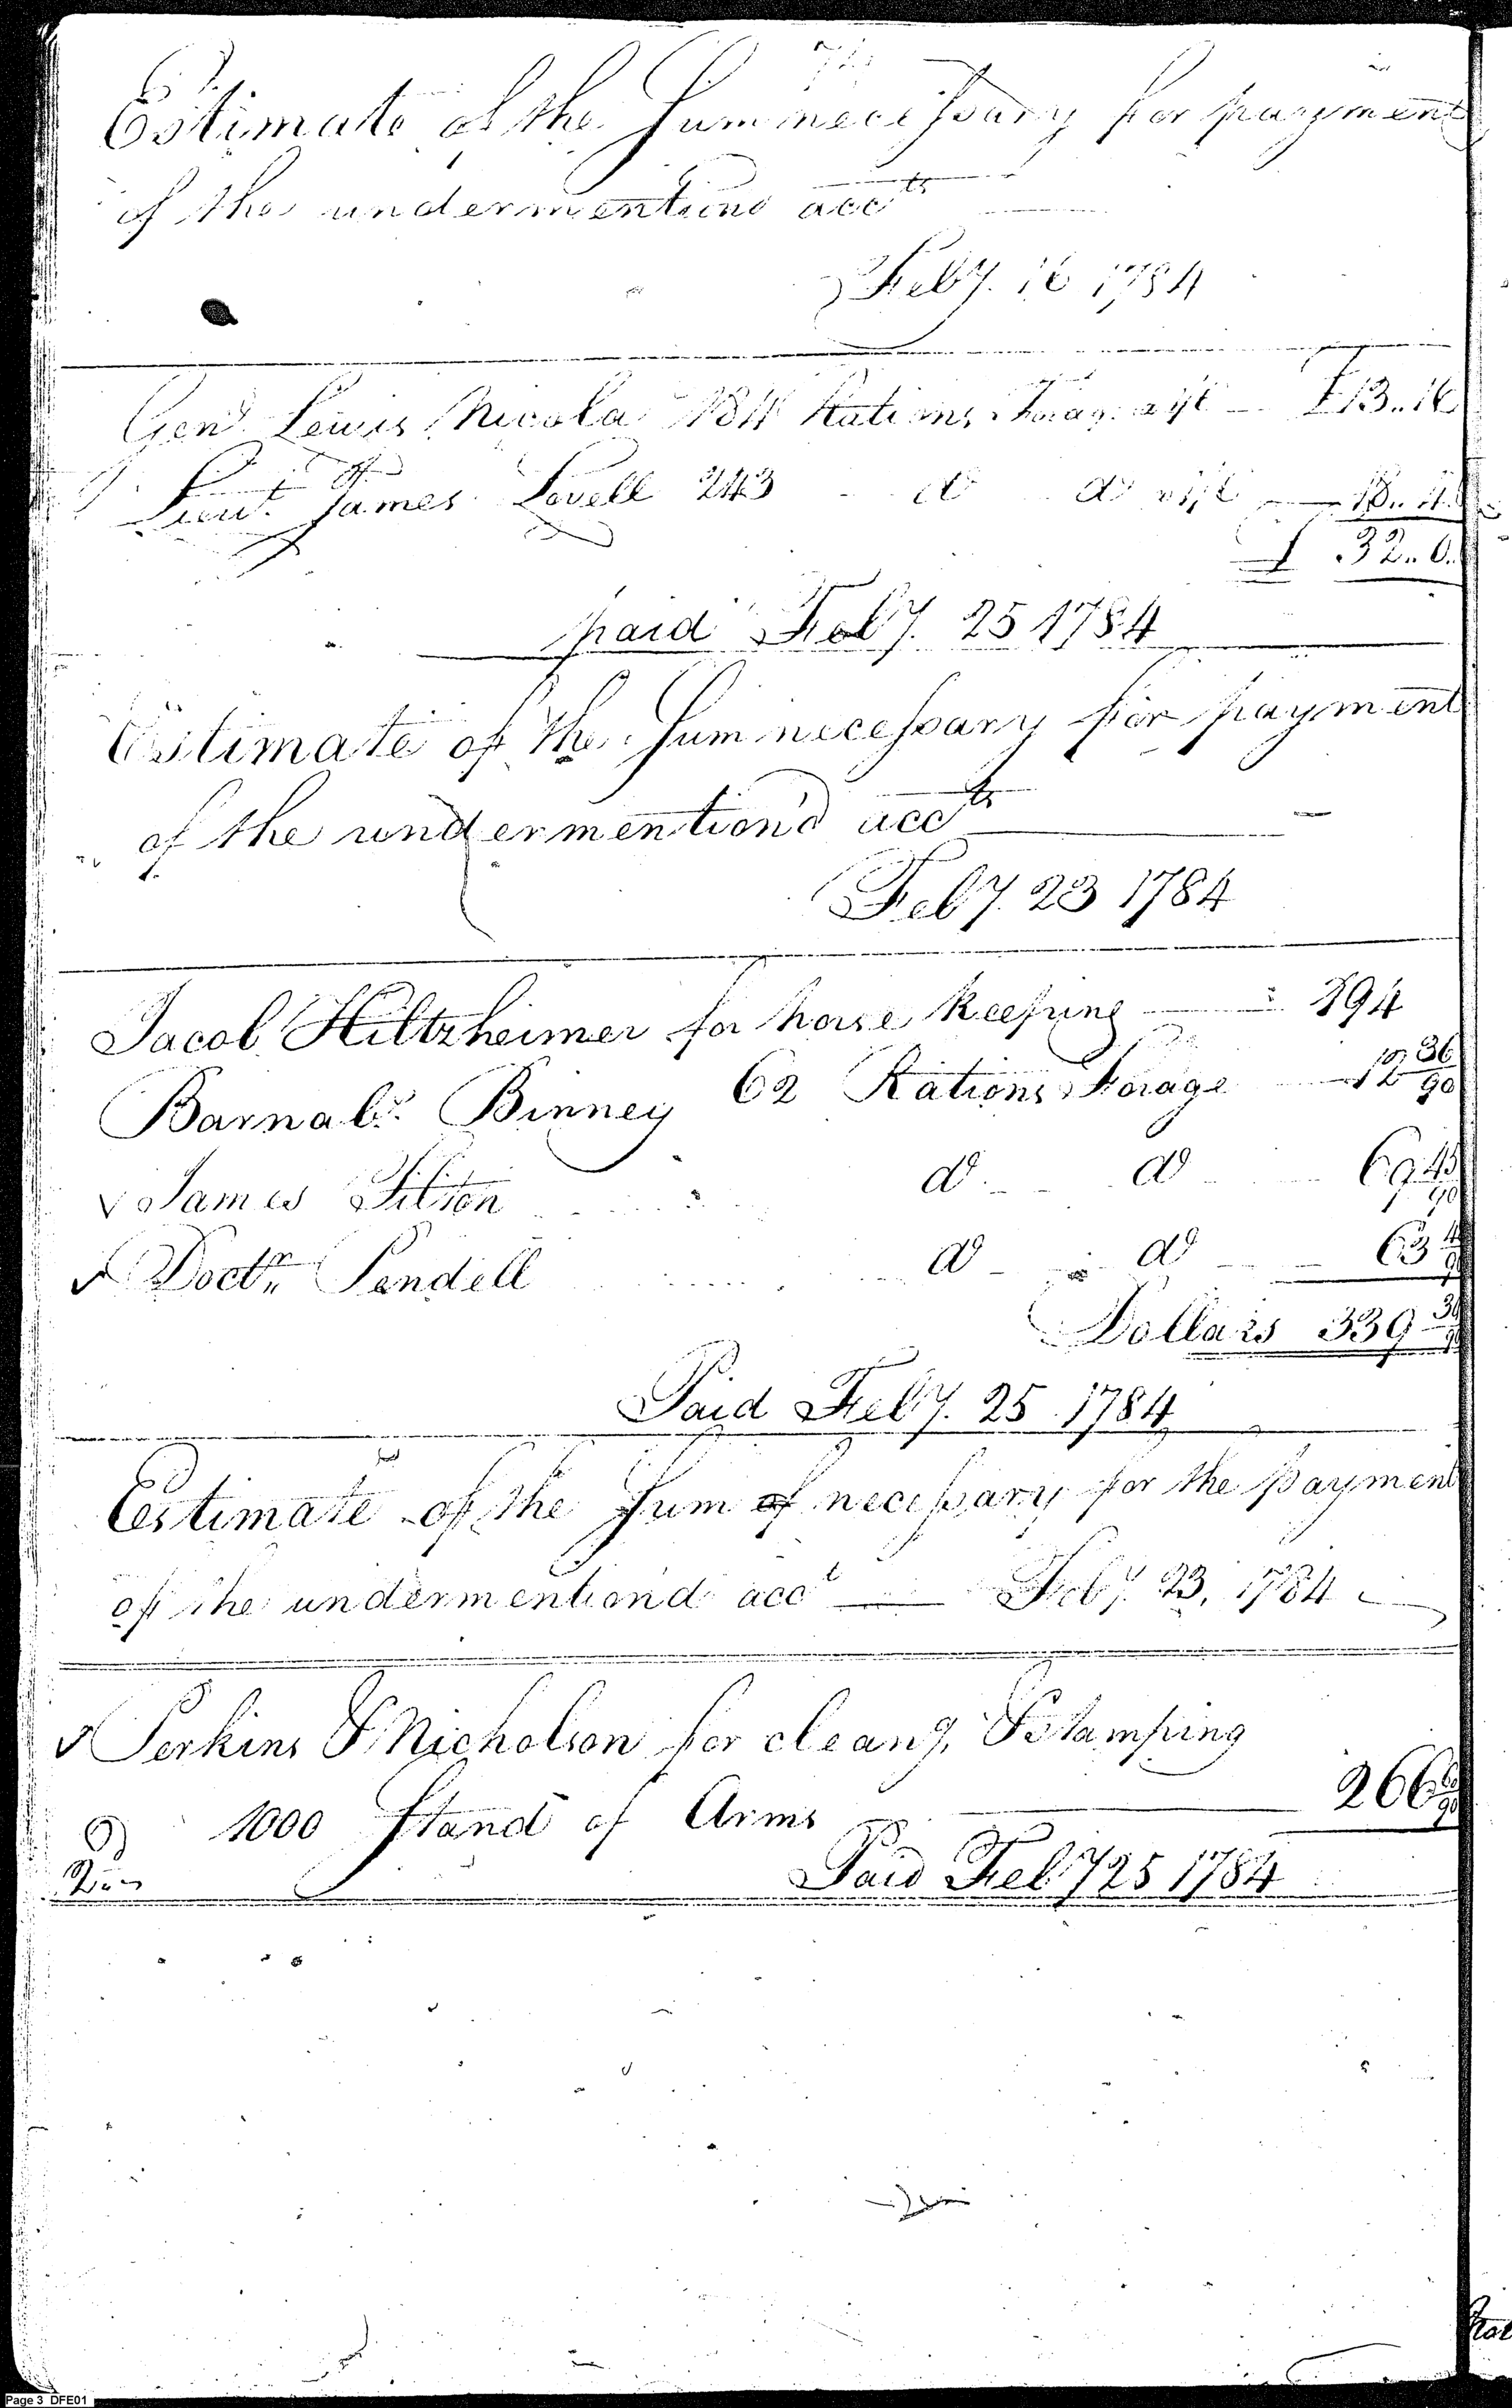 Estimate of the Sum necessary for payment
of the undermentiond accts
Feby. 16 1784
Genl Lewis Nicola 184 Rations Forage a 1/6 £13..16
Lieut. James Lovell 243 do do a 1/6 18..4
£ 32..0..
paid Feby. 25 1784
Estimate of the Sum necessary for payment
of the undermention'd accts
Feby. 23 1784
Jacob Hiltzheimer for horse keeping 194
Barnabs. Binney 62 Rations Forage 12 36/90
James Tilton do do 69 45/90
Doctr. Pendell do do 63
Dollars 339 30/90
Paid Feby. 25. 1784
Estimate of the Sum of necessary for the payment
of the undermention'd acct Feby. 23. 1784
Perkins & Nicholson for cleang. & Stamping
1000 Stand of Arms 266 60/90
Paid Feby 25 1784
Page 3 DFE01